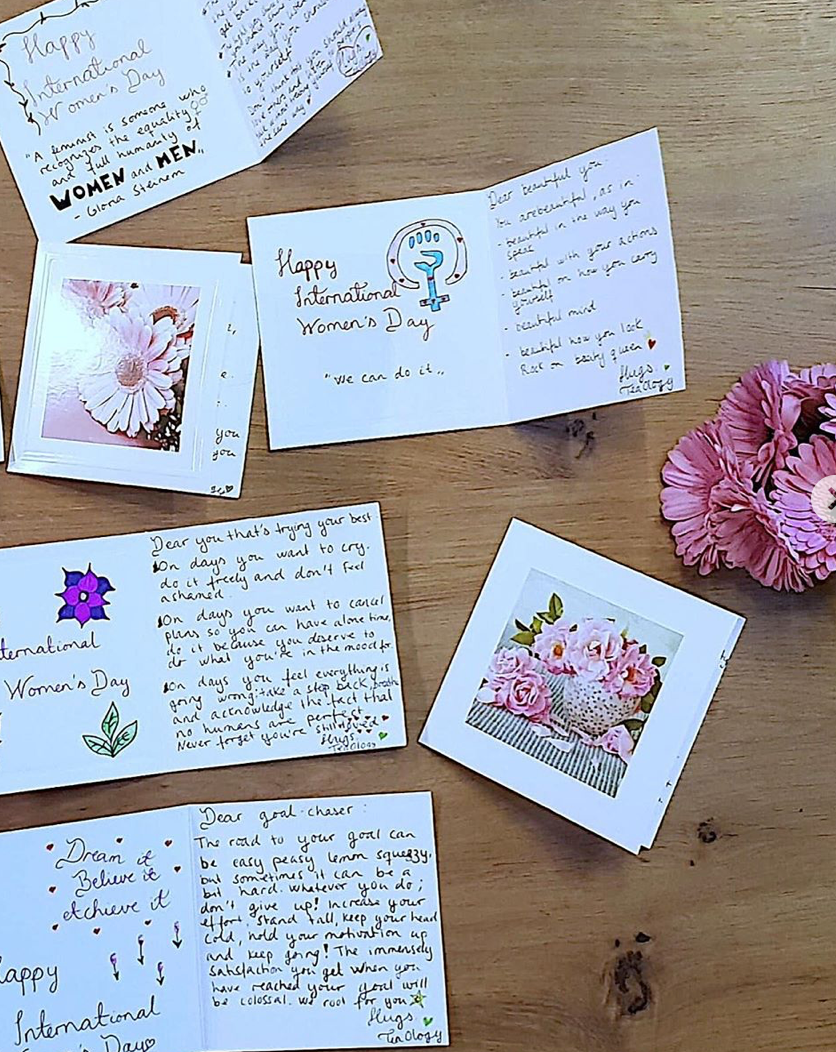 Happy
International
Women's Day
"A feminist is someone who
recognizes the equality
and full humanity of
WOMEN and MEN„
- Gloria Steinem
to yourself
Happy
International
Women's Day
"We can do it„
Dear beautiful you:
You are beautiful, as in:
- beautiful in the way you
speak
- beautiful with your actions
- beautiful on how you carry
yourself
- beautiful mind
- beautiful how you look
Rock on beauty queen
Hugs
TeaOlogy
you
you
ternational
Women's Day
Dear you that's trying your best
On days you want to cry.
do it freely and don't feel
ashamed.
On days you want to cancel
plans so you can have alone time,
do it because you deserve to
do what you're in the mood for.
On days you feel everything is
going wrong take a step back, breath
and acknowledge the fact that
no humans are perfect.
Never forget you're still loved
Hugs
TeaOlogy
Dream it
Believe it
Achieve it
appy
International
Women's Day
Dear goal-chaser:
The road to your goal can
be easy peasy lemon squeezy,
but sometimes it can be a
bit hard. Whatever you do;
don't give up! Increase your
effort, stand tall, keep your head
cold, hold your motivation up
and keep going! The immensely
satisfaction you get when you
have reached your goal will
be colossal. We root for you
Hugs
TeaOlogy